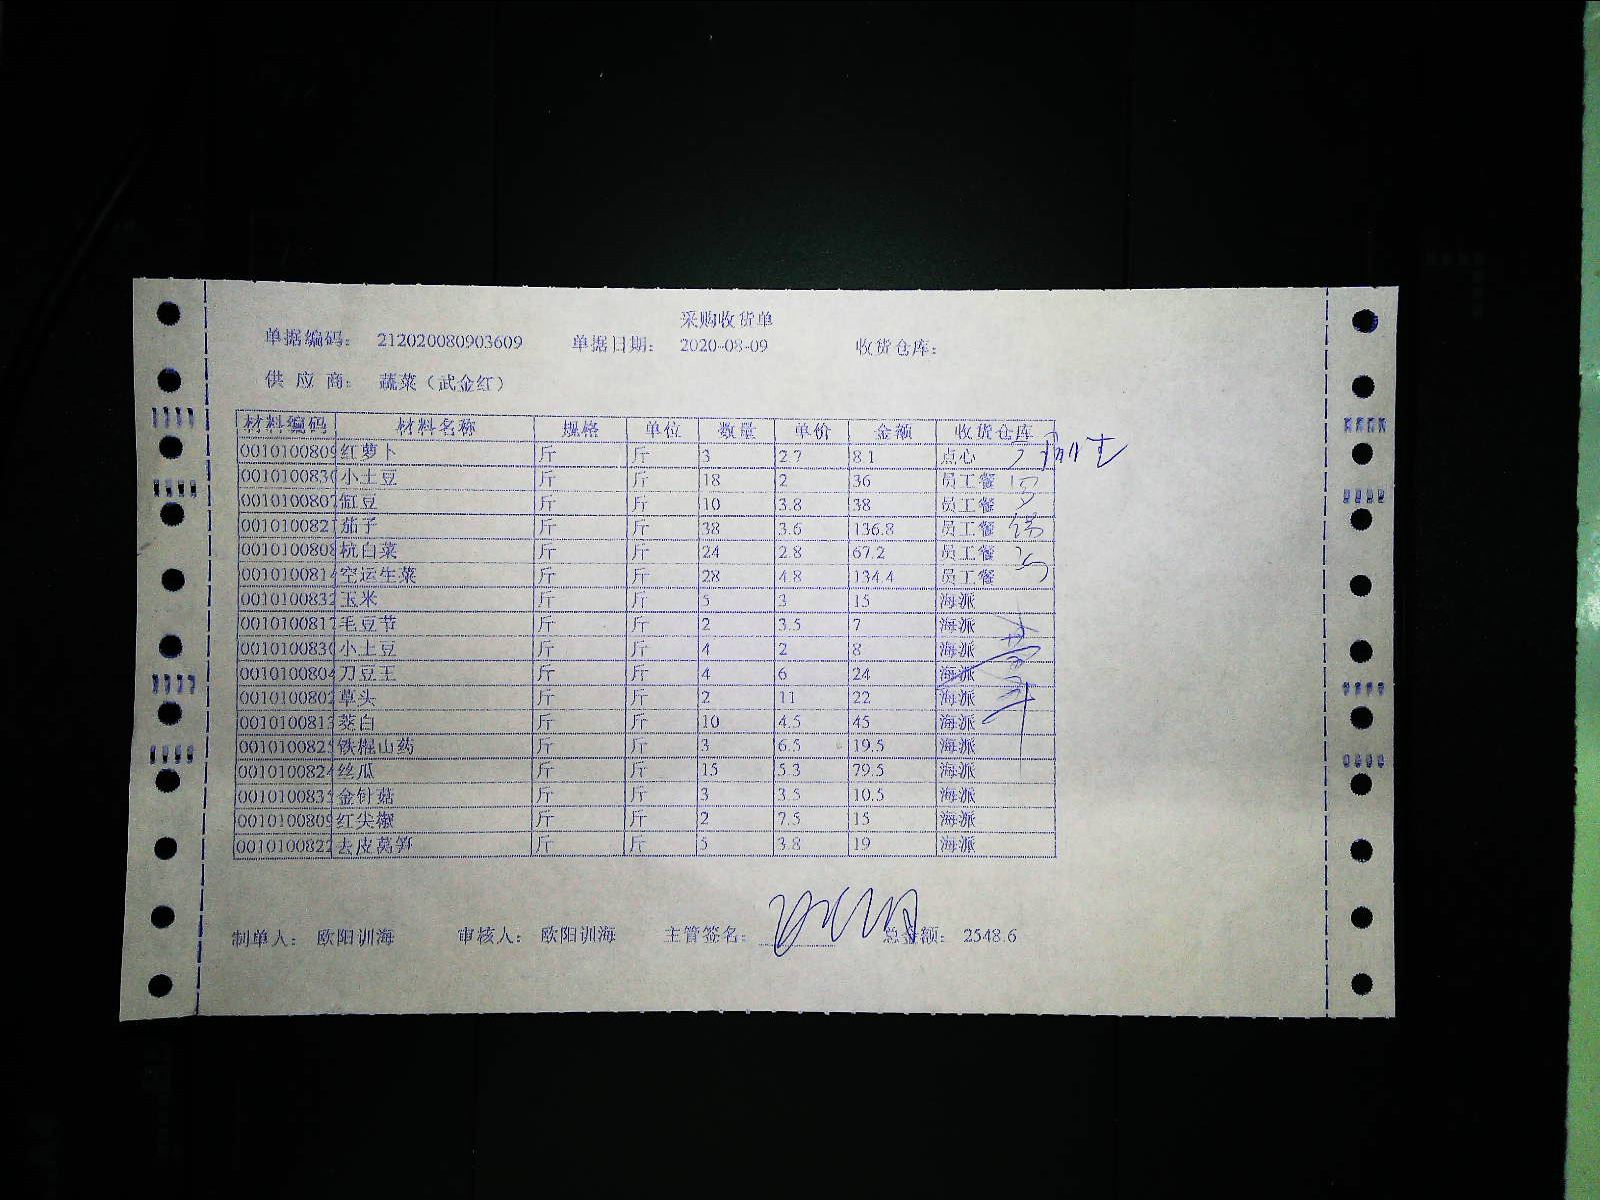 采购收货单
单据编码： 212020080903609 单据日期： 2020-08-09 收货仓库：
供 应 商： 蔬菜（武金红）
材料编码 材料名称 规格 单位 数量 单价 金额 收货仓库
0010100809 红萝卜 斤 斤 3 2.7 8.1 点心
001010083 小土豆 斤 斤 18 2 36 员工餐
001010080 缸豆 斤 斤 10 3.8 38 员工餐
001010082 茄子 斤 斤 38 3.6 136.8 员工餐
0010100808 杭白菜 斤 斤 24 2.8 67.2 员工餐
001010081 空运生菜 斤 斤 28 4.8 134.4 员工餐
0010100832 玉米 斤 斤 5 3 15 海派
001010081 毛豆节 斤 斤 2 3.5 7 海派
001010083 小土豆 斤 斤 4 2 8 海派
001010080 刀豆王 斤 斤 4 6 24 海派
001010080 草头 斤 斤 2 11 22 海派
001010081 茭白 斤 斤 10 4.5 45 海派
001010082 铁棍山药 斤 斤 3 6.5 19.5 海派
001010082 丝瓜 斤 斤 15 5.3 79.5 海派
001010083 金针菇 斤 斤 3 3.5 10.5 海派
0010100809 红尖椒 斤 斤 2 7.5 15 海派
0010100822 去皮莴笋 斤 斤 5 3.8 19 海派
制单人： 欧阳训海 审核人： 欧阳训海 主管签名： 总金额： 2548.6